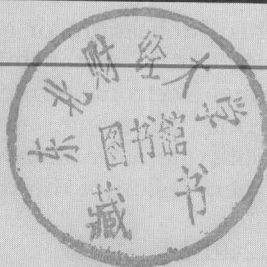 东北财经大学
图书馆
藏书